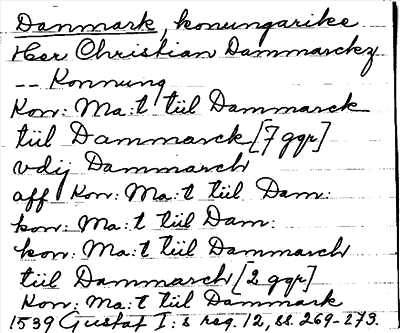 Danmark, konungarike
Her Christian Dammarckz
-- Konnung
Kon: Ma:t tiil Dammarck
tiil Dammarck [7 ggr]
vdij Dammarch
aff Kon: Ma:t tiil Dam:
kon: Ma:t tiil Dam:
kon: Ma:t tiil Dammarch
tiil Dammarch [2 ggr]
Kon: Ma:t tiil Danmark
1539 Gustaf I:s reg. 12, ss. 269-273.